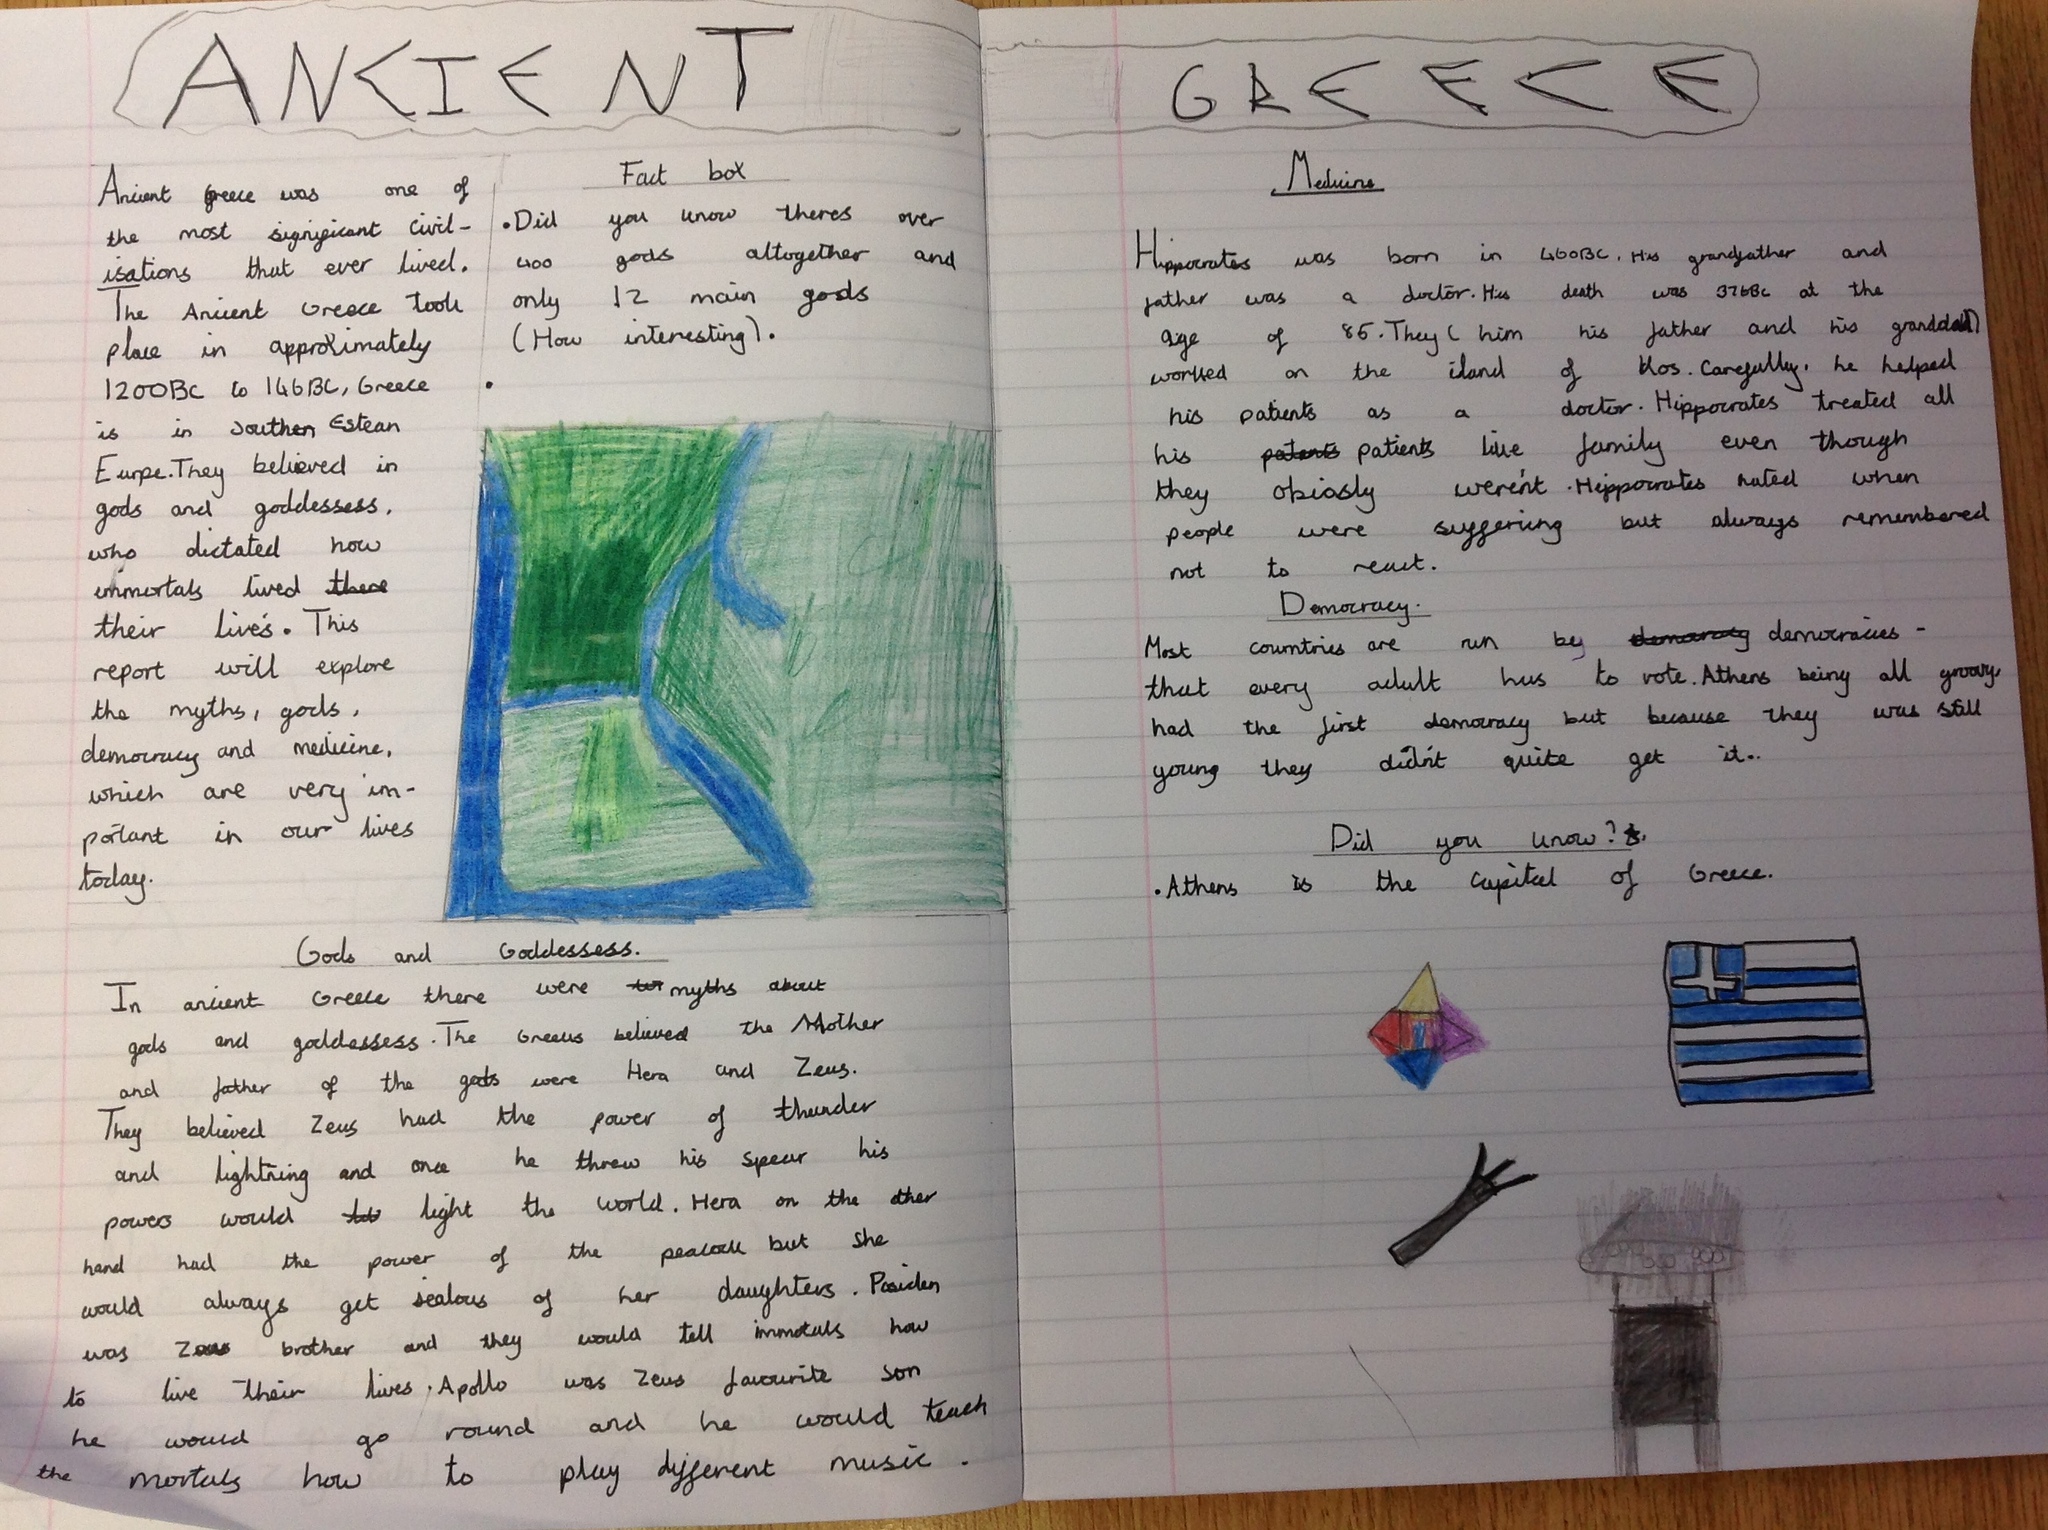 ANCIENT GREECE
Ancient Greece was one of
the most significant civil-
isations that ever lived.
The Ancient Greece took
place in approximately
1200BC to 146BC, Greece
is in Southen Estean
Eurpe. They believed in
gods and goddessess,
who dictated how
immortals lived there
their live's. This
report will explore
the myths, gods,
democracy and medicine,
which are very im-
portant in our lives
today.
Fact box
• Did you know theres over
400 gods altogether and
only 12 main gods
(How interesting).
•
Gods and Goddessess.
In ancient Greece there were myths about
gods and goddessess. The Greeks believed the Mother
and father of the gods were Hera and Zeus.
They believed Zeus had the power of thunder
and lightning and once he threw his spear his
powers would light the world. Hera on the other
hand had the power of the peacock but she
would always get jealous of her daughters. Posiden
was Zeus brother and they would tell immotals how
to live their lives. Apollo was Zeus favourite son
he would go round and he would teach
the mortals how to play different music.
Medicine
Hippocrates was born in 460BC. His grandfather and
father was a doctor. His death was 376BC at the
age of 85. They (him his father and his granddad)
worked on the island of Kos. Carefully, he helped
his patients as a doctor. Hippocrates treated all
his patents patients like family even though
they obiosly weren't. Hippocrates hated when
people were suffering but always remembered
not to react.
Democracy.
Most countries are run by democracy democracies -
that every adult has to vote. Athens being all groovy,
had the first democracy but because they was still
young they didn't quite get it..
Did you know?
• Athens is the capital of Greece.